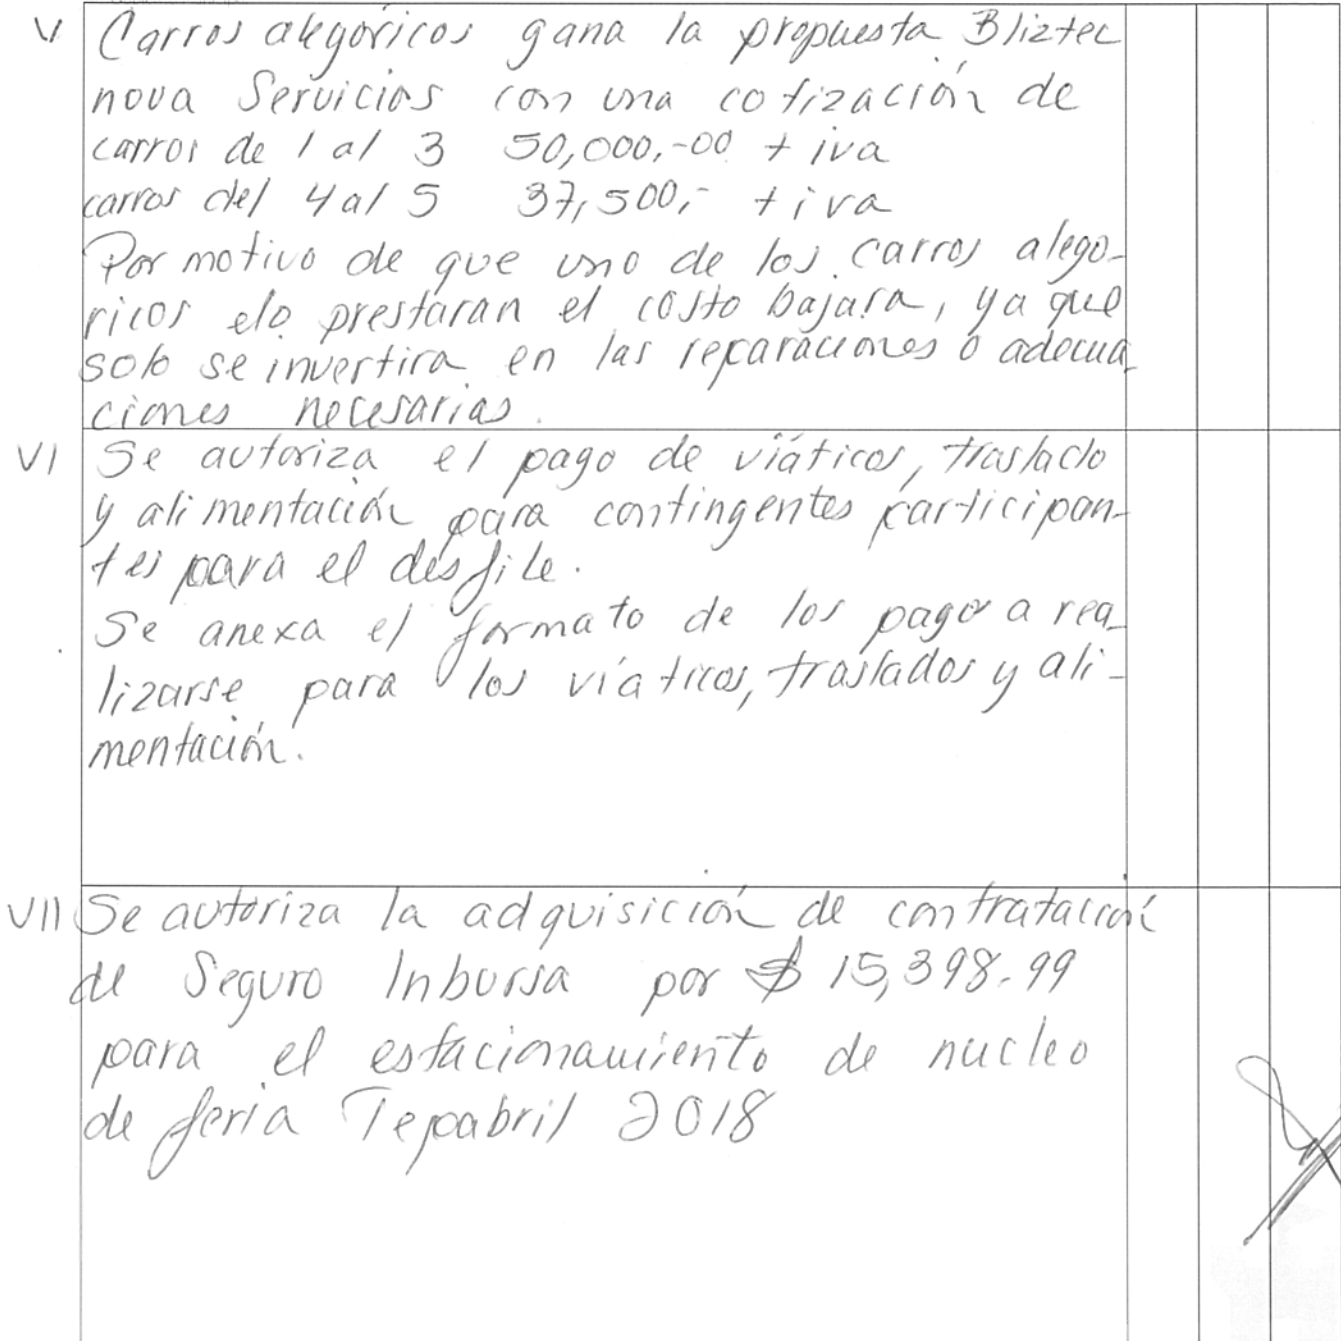 V Carros alegóricos gana la propuesta Bliztec
nova Servicios con una cotización de
carros de 1 al 3 50,000,-00 + iva
carros del 4 al 5 37,500,- + iva
Por motivo de que uno de los carros alego-
ricos elo prestaran el costo bajara, ya que
solo se invertira en las reparaciones o adecua-
ciones necesarias.
VI Se autoriza el pago de viáticos, traslado
y alimentación para contingentes participan-
tes para el desfile.
Se anexa el formato de los pagos a rea-
lizarse para los viáticos, traslados y ali-
mentación.
VII Se autoriza la adquisición de contratación
de Seguro Inbursa por $ 15,398.99
para el estacionamiento de nucleo
de feria Tepabril 2018